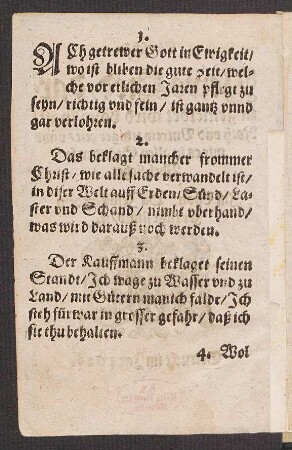 1.
ACh getrewer Gott in Ewigkeit/
wo ist bliben die gute zeit/ wel-
che vor etlichen Jaren pflegt zu
seyn/ richtig vnd fein/ ist gantz vnnd
gar verlohren.
2.
Das beklagt mancher frommer
Christ/ wie alle sache verwandelt ist/
in diser Welt auff Erden/ Sünd/ La-
ster vnd Schand/ nimbt vberhand/
was wird darauß noch werden.
3.
Der Kauffmann beklaget seinen
Standt/ Ich wage zu Wasser vnd zu
Land/ mit Gütern manichfaldt/ Ich
steh fürwar in grosser gefahr/ daß ich
sie thu behalten.
4. Wol